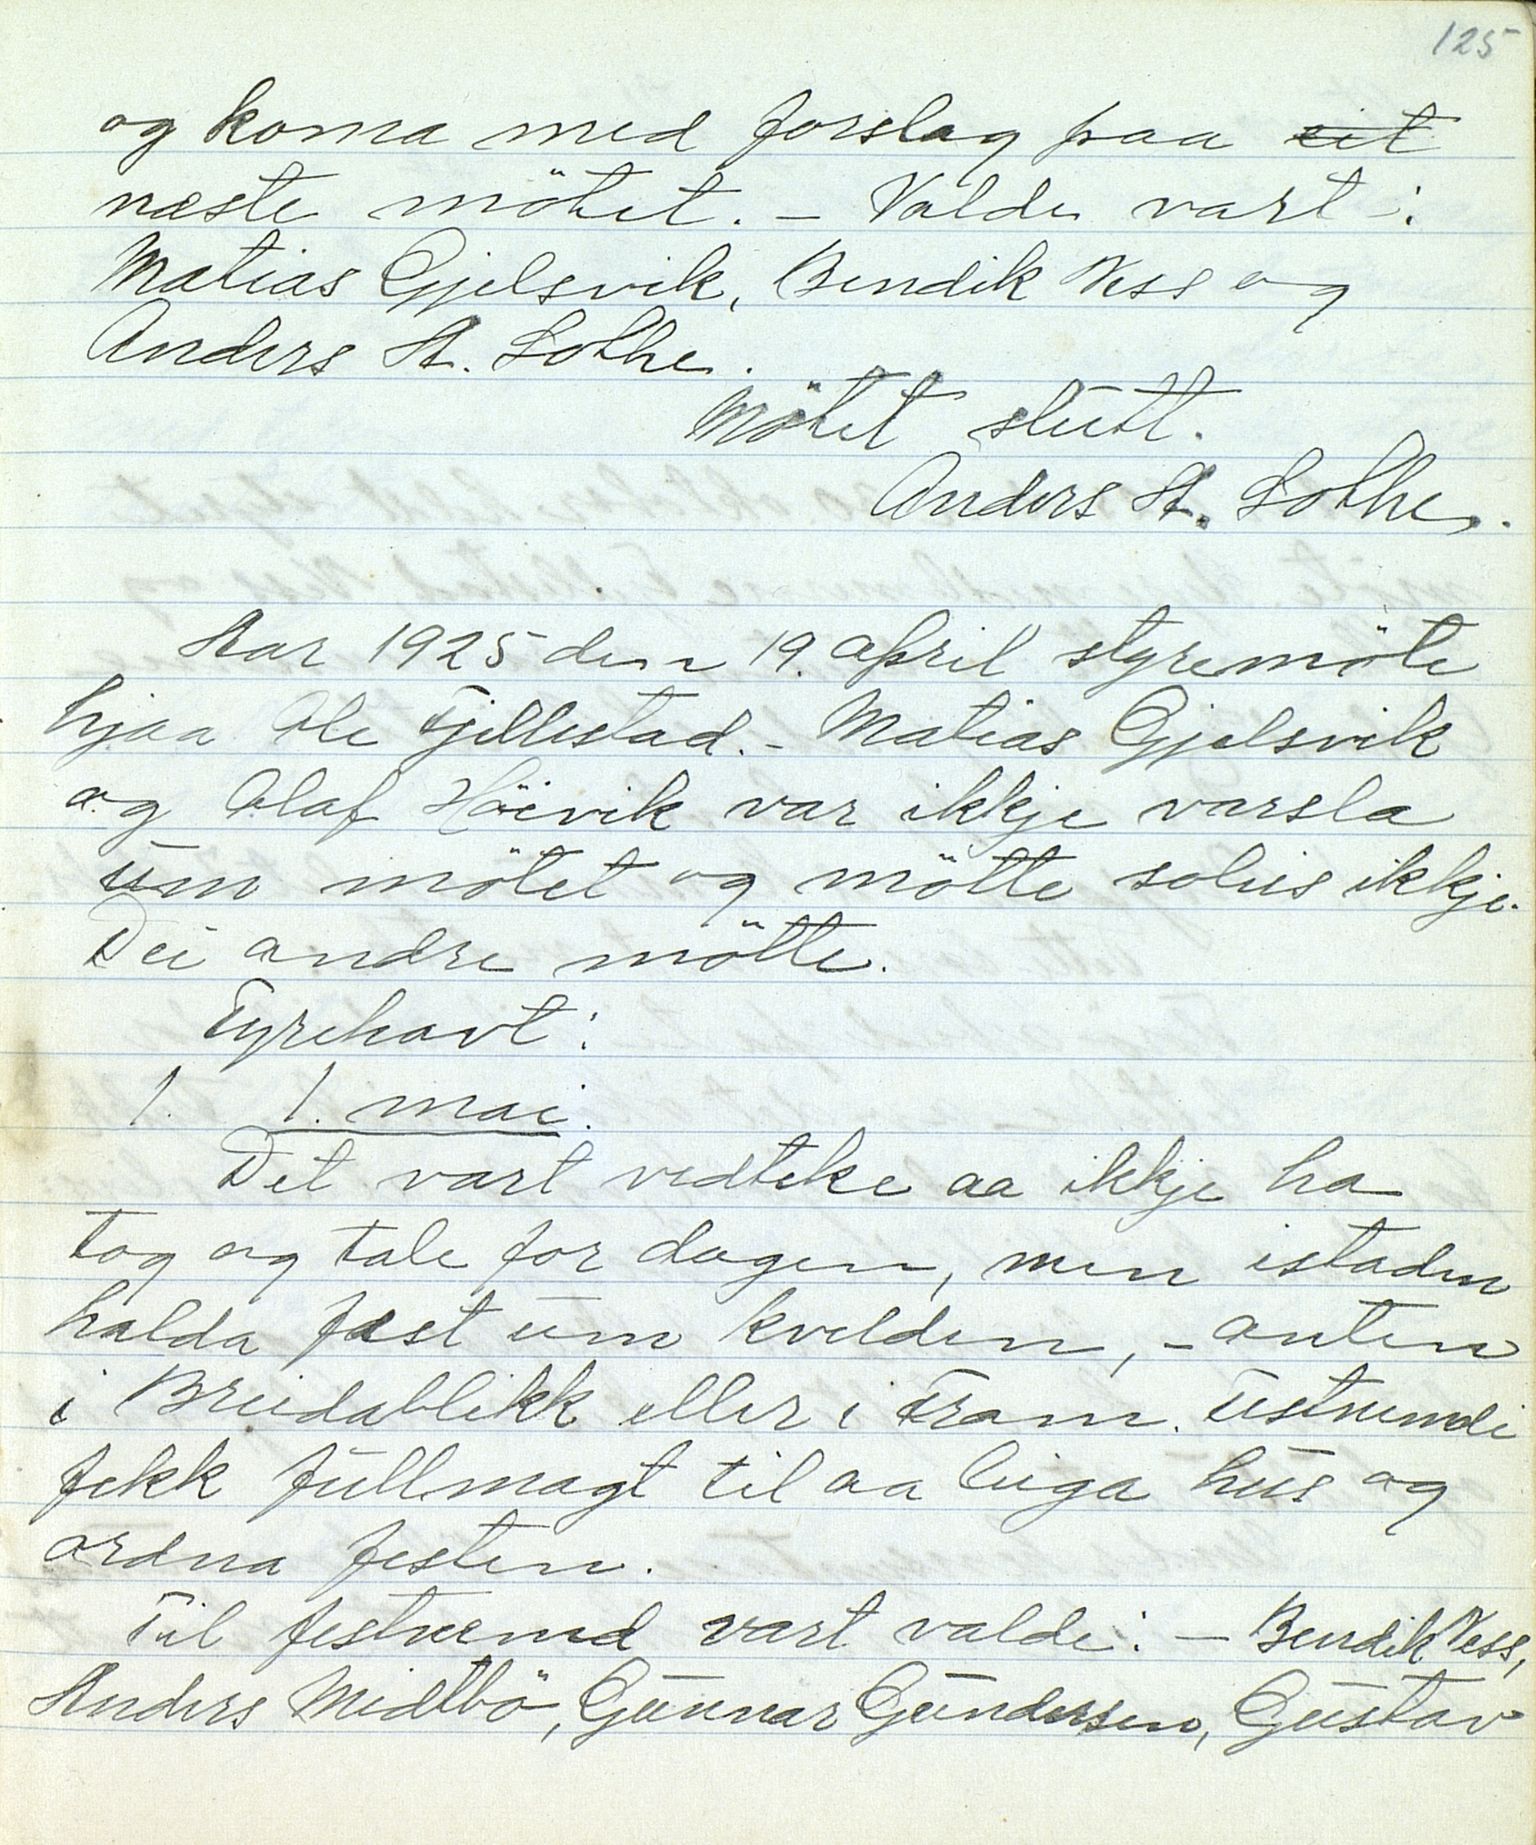 125
og koma med forslag paa eit
næste mötet. – Valde vart:
Matias Gjelsvik, Bendik Ness og
Anders A. Lothe.
Mötet slutt.
Anders A. Lothe.
Aar 1925 den 19. april styremöte
hjaa Ole Fjellestad. – Matias Gjelsvik
og Olaf Höivik var ikkje varsla
um mötet og mötte soleis ikkje.
Dei andre mötte.
Fyrehavt:
1. 1. mai.
Det vart vedteke aa ikkje ha
tog og tale for dagen, men istaden
halda fest um kvelden, – anten
i Breidablikk eller i Fram. Festnemdi
fekk fullmagt til aa leiga hus og
ordna festen.
Til festnemd vart valde: – Bendik Ness,
Anders Midtbö, Gunnar Gundersen, Gustav